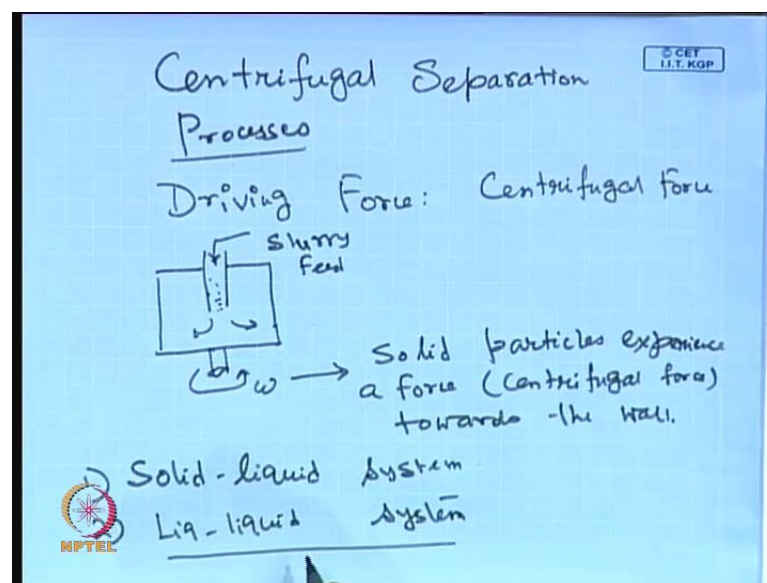 © CET
I.I.T. KGP
Centrifugal Separation
Processes
Driving Force: Centrifugal Force
Slurry
feed
ω → Solid particles experience
a force (centrifugal force)
towards the wall.
1) Solid-liquid system
2) Liq-liquid system
NPTEL